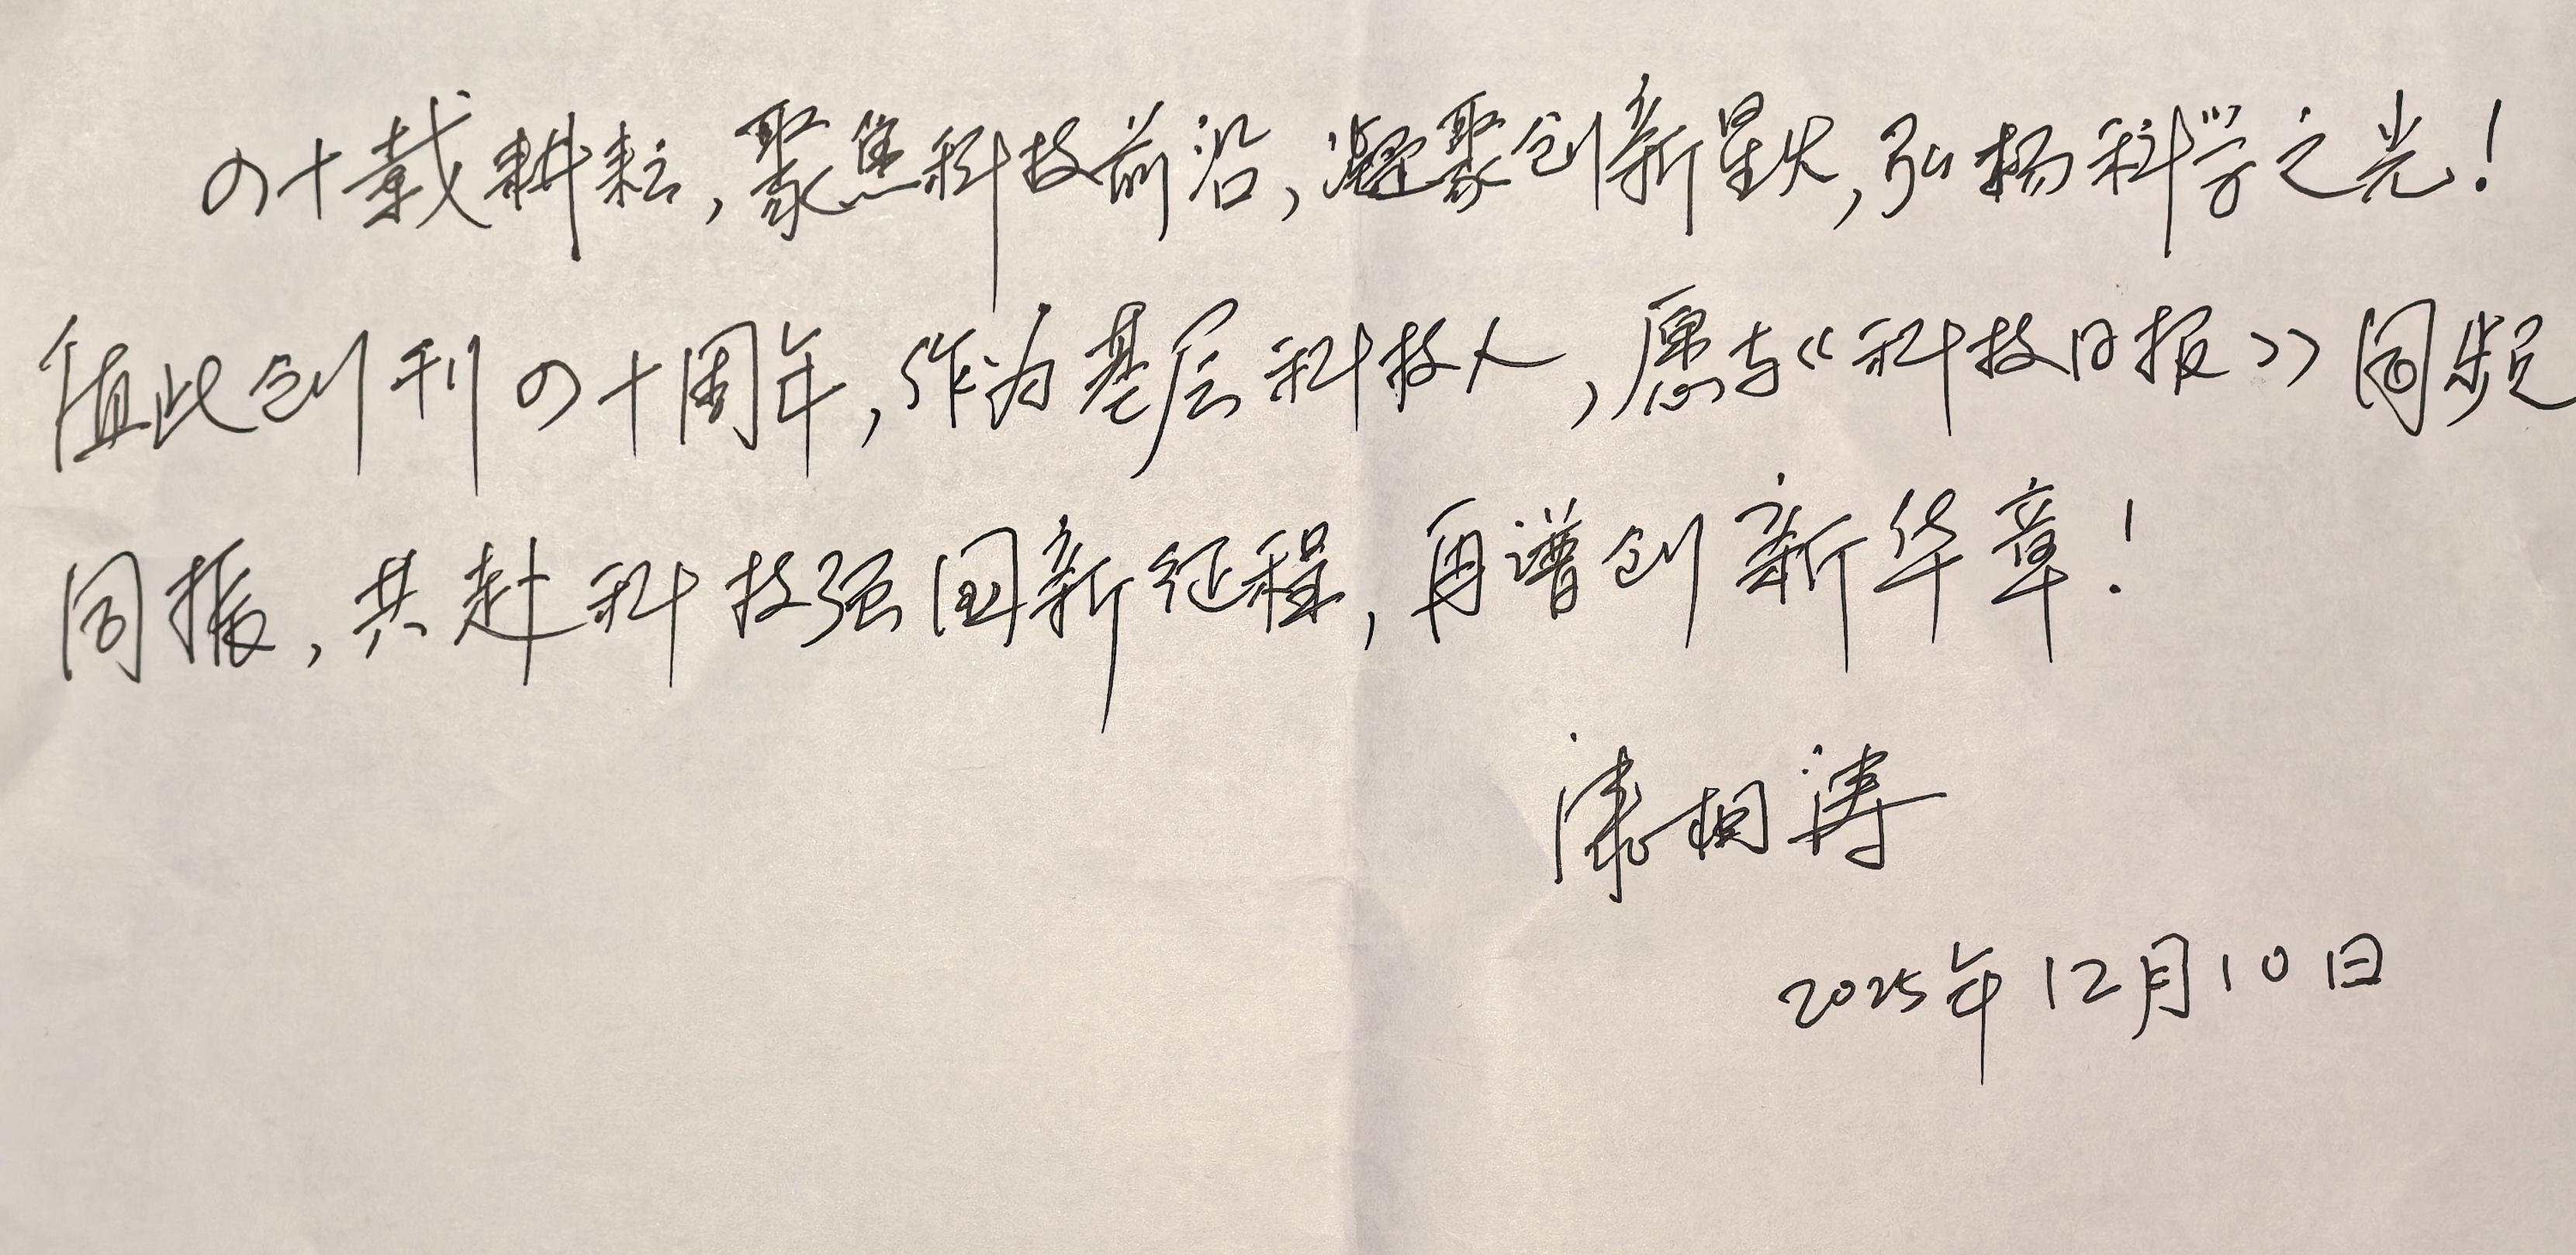 四十载耕耘,聚焦科技前沿,凝聚创新星火,弘扬科学之光!
值此创刊四十周年,作为基层科技人,愿与《科技日报》同频
同振,共赴科技强国新征程,再谱创新华章!
相涛
2025年12月10日